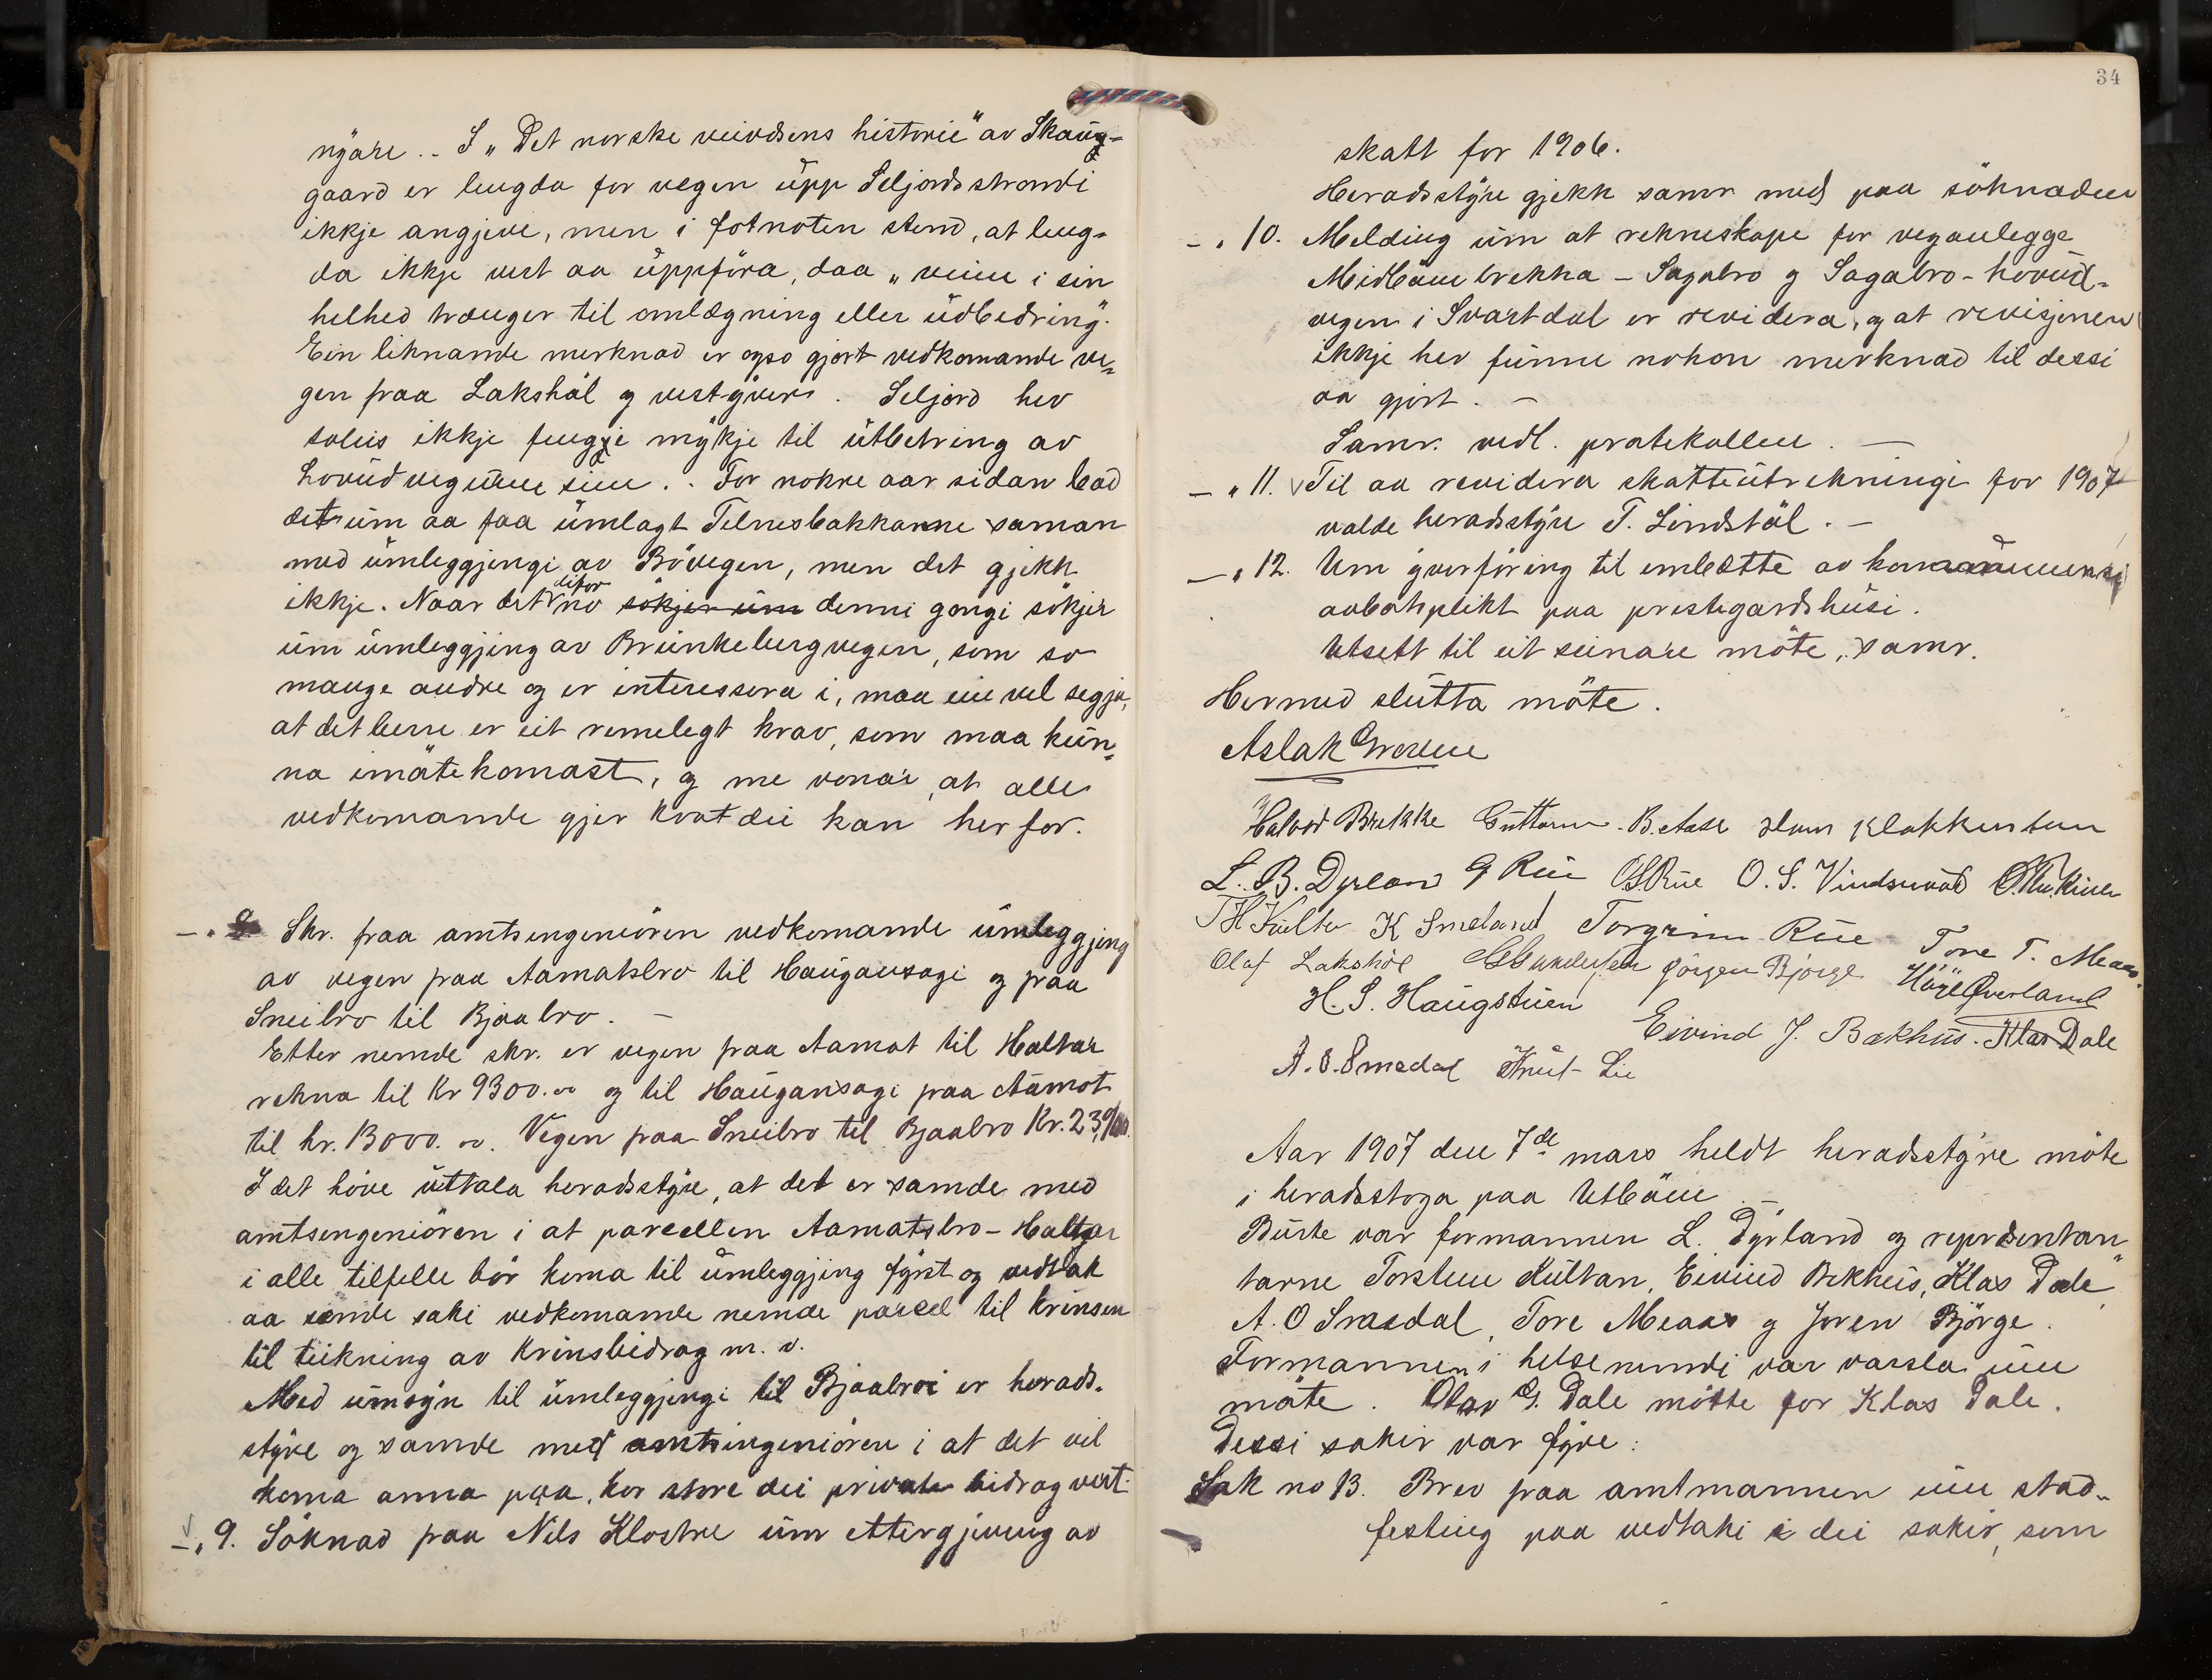 nyare .. I „Det norske veivæsens historie" av Skaug-
gaard er lengda for vegen upp Seljordsstrondi
ikkje angjeve, men i fotnoten stend, at leng-
da ikkje vert aa uppføra, daa „veien i sin
helhed trænger til omlægning eller udbedring".
Ein liknande merknad er ogso gjort vedkomande ve-
gen fraa Lakshøl og vestyver. Seljord hev
soleis ikkje fengje mykje til utbetring av
hovudvegune sine. - For nokre aar sidan bad
det um aa faa umlagt Telnesbakkanne saman
med umleggjingi av Bøvegen, men det gjekk
ikkje. Naar det difor no søkjer um denne gongi søkjer
um umleggjing av Brunkebergvegen, som so
mange andre og er interessera i, maa ein vel segja,
at det berre er eit rimelegt krav, som maa kun-
na imøtekomast, og me vonar, at alle
vedkomande gjer kvat dei kan her for.
- „ 8. Skr. fraa amtsingeniøren vedkomande umleggjing
av vegen fraa Aamotsbro til Haugansagi og fraa
Sneibro til Bjaabro. -
Etter nemde skr. er vegen fraa Aamot til Haltar
rekna til Kr 9300.00 og til Haugansagi fraa Aamot
til kr. 13000.00. Vegen fraa Sneibro til Bjaabro Kr.
I det høve uttala heradsstyre, at det er samde med
amtsingeniøren i at parcellen Aamotsbro - Haltar
i alle tilfelle bør koma til umleggjing fyrst og vedtok
aa sende saki vedkomande nemde parcel til krinsen
til teikning av krinsbidrag m. v.
Med umsyn til umleggjingi til Bjaabroi er herads-
styre og samde med amtsingeniøren i at det vil
koma anna paa, kor store dei private bidrag vert.
- „ 9. Søknad fraa Nils Klostre um ettergjeving av
34
skatt for 1906.
Heradsstyre gjekk samr med paa søknaden
- „ 10. Melding um at rekneskape for veganlegge
Midbøenbrekka - Sagabro og Sagabro - hovud-
vegen i Svartdal er revidera, og at revisjonen
ikkje hev funne nokon merknad til dessi
aa gjort. -
Samr. vedl. protokollen. -
- „ 11. Til aa revidera skatteutrekningi for 1907
valde heradsstyre T. Lindstøl. -
- „ 12. Um yverføring til embætte av kommunens
aabotsplikt paa prestegardshusi.
Utsett til eit seinare møte, samr.
Hermed slutta møte.
Aslak Groven
Halvod Brekke Guttorm B. Aase Hans Klokkerstun
L. B. Dyrland G Rui O S Rue O. S. Vindsvoll
T H Kuiltu K Smeland Torgrim Rue Tore T. Meaas
Olaf Lakshøl G Gundersen Jørgen Bjørge Høye Øverland
H. S. Haugstuen Eivind J. Bækhus. Klas Dale
A. O. Smedal Knut Lie
Aar 1907 den 7de mars heldt heradsstyre møte
i heradsstoga paa Utbøen. -
Burte var formannen L. Dyrland og representan-
tarne Torstein Kultan, Eivind Bekhus, Klas Dale,
A. O Smedal, Tore Meaas og Joren Bjørge.
Formannen i helsenemndi var varsla um
møte. Olav G. Dale møtte for Klas Dale.
Dessi sakir var fyre:
Sak no 13. Brev fraa amtmannen um stad-
festing paa vedtaki i dei sakir, som